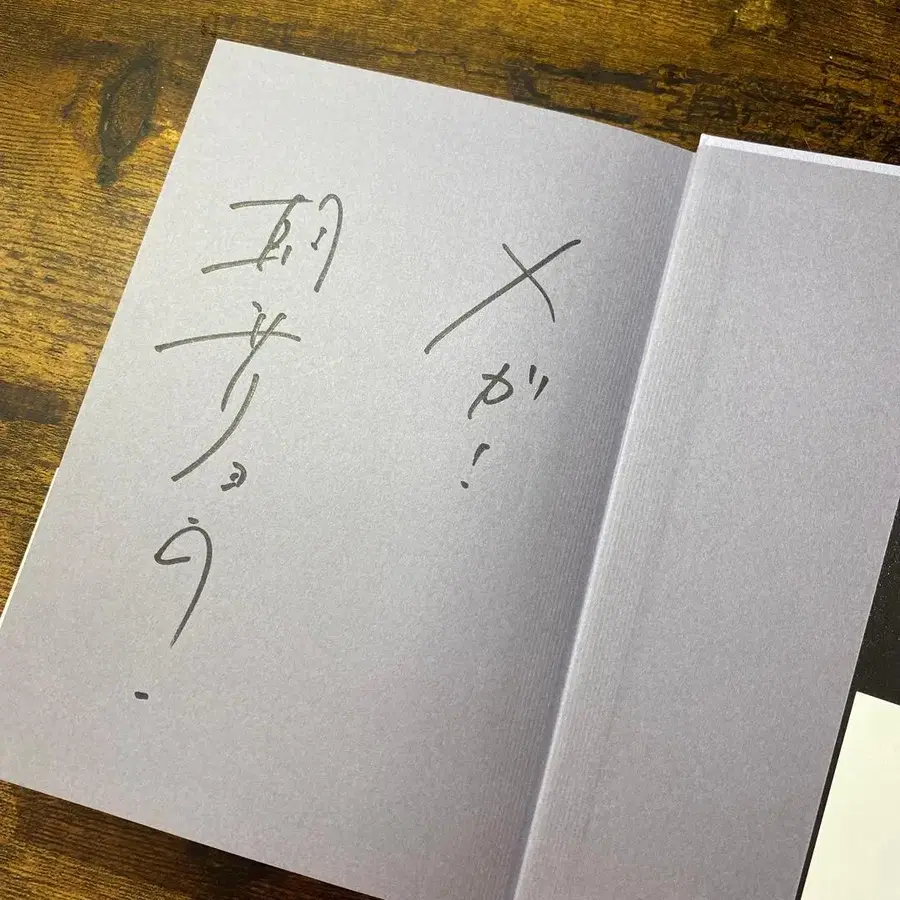 メガ!
朝井リョウ.